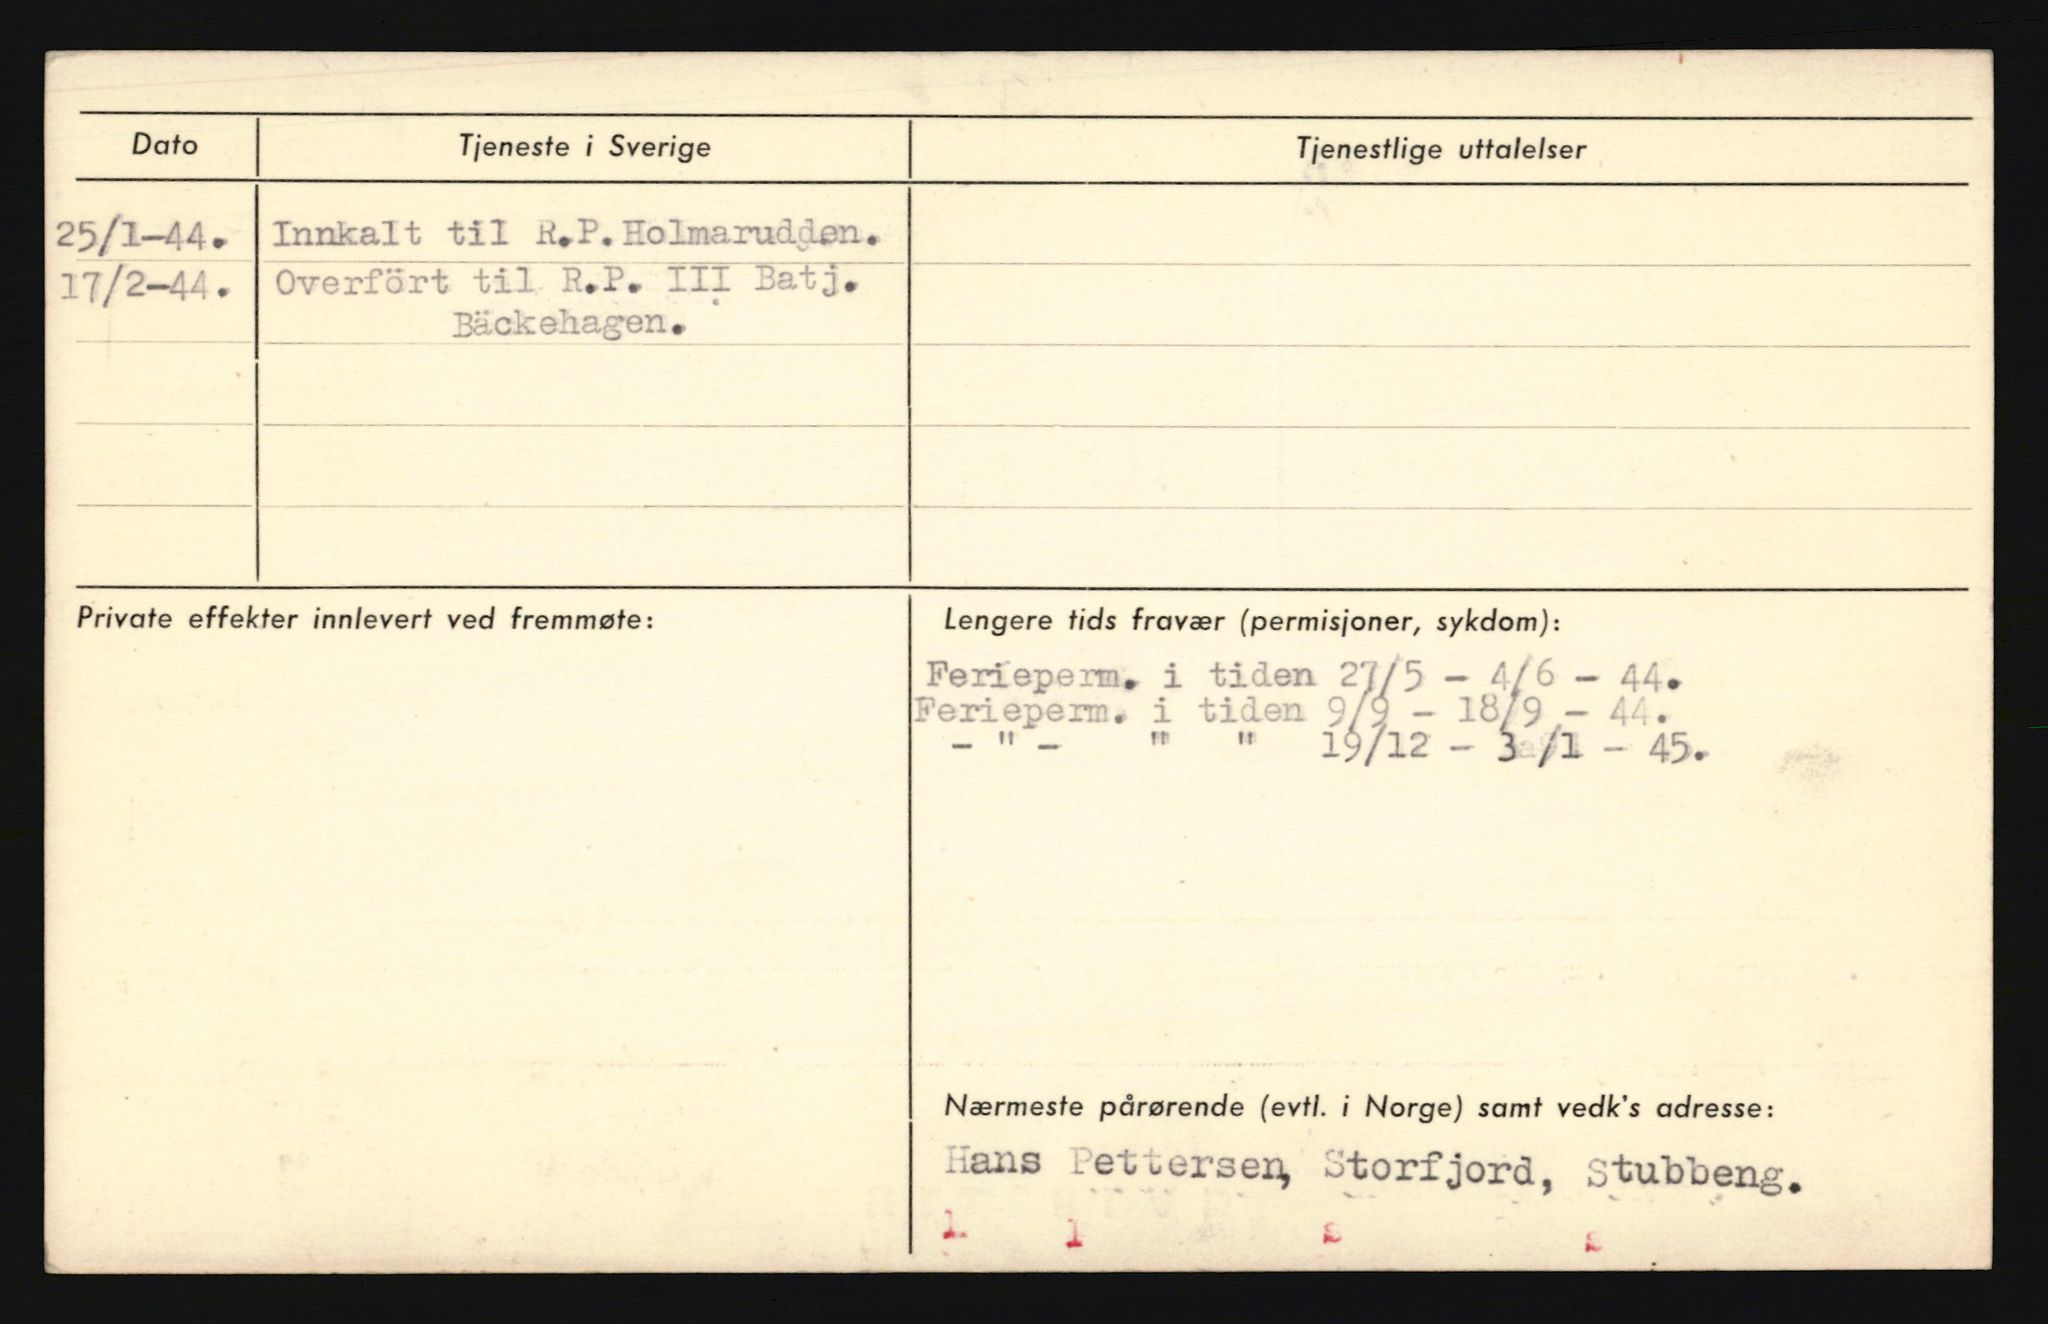 Dato Tjeneste i Sverige Tjenestlige uttalelser
25/1-44. Innkalt til R.P. Holmarudden.
17/2-44. Overfört til R.P. III Batj.
Bäckehagen.
Private effekter innlevert ved fremmøte:
Lengere tids fravær (permisjoner, sykdom):
Ferieperm. i tiden 27/5 - 4/6 - 44.
Ferieperm. i tiden 9/9 - 18/9 - 44.
- " - " " 19/12 - 3 /1 - 45.
Nærmeste pårørende (evtl. i Norge) samt vedk's adresse:
Hans Pettersen, Storfjord, Stubbeng.
l l s s